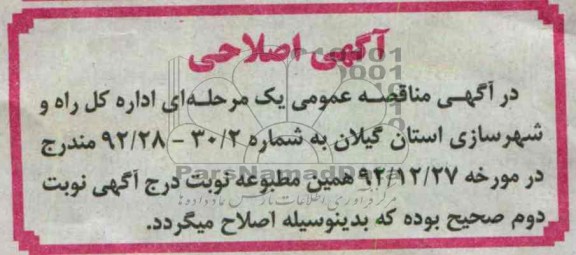 آگهی اصلاحی
در آگهـی مناقصـه عمومی یک مرحلـه‌ای اداره کل راه و
شهرسازی استان گیلان به شماره ۳۰/۲ – ۹۲/۲۸ مندرج
در مورخه ۹۲/۱۲/۲۷ همین مطبوعه نوبت درج آگهی نوبت
دوم صحیح بوده که بدینوسیله اصلاح میگردد.
ParsNamadData